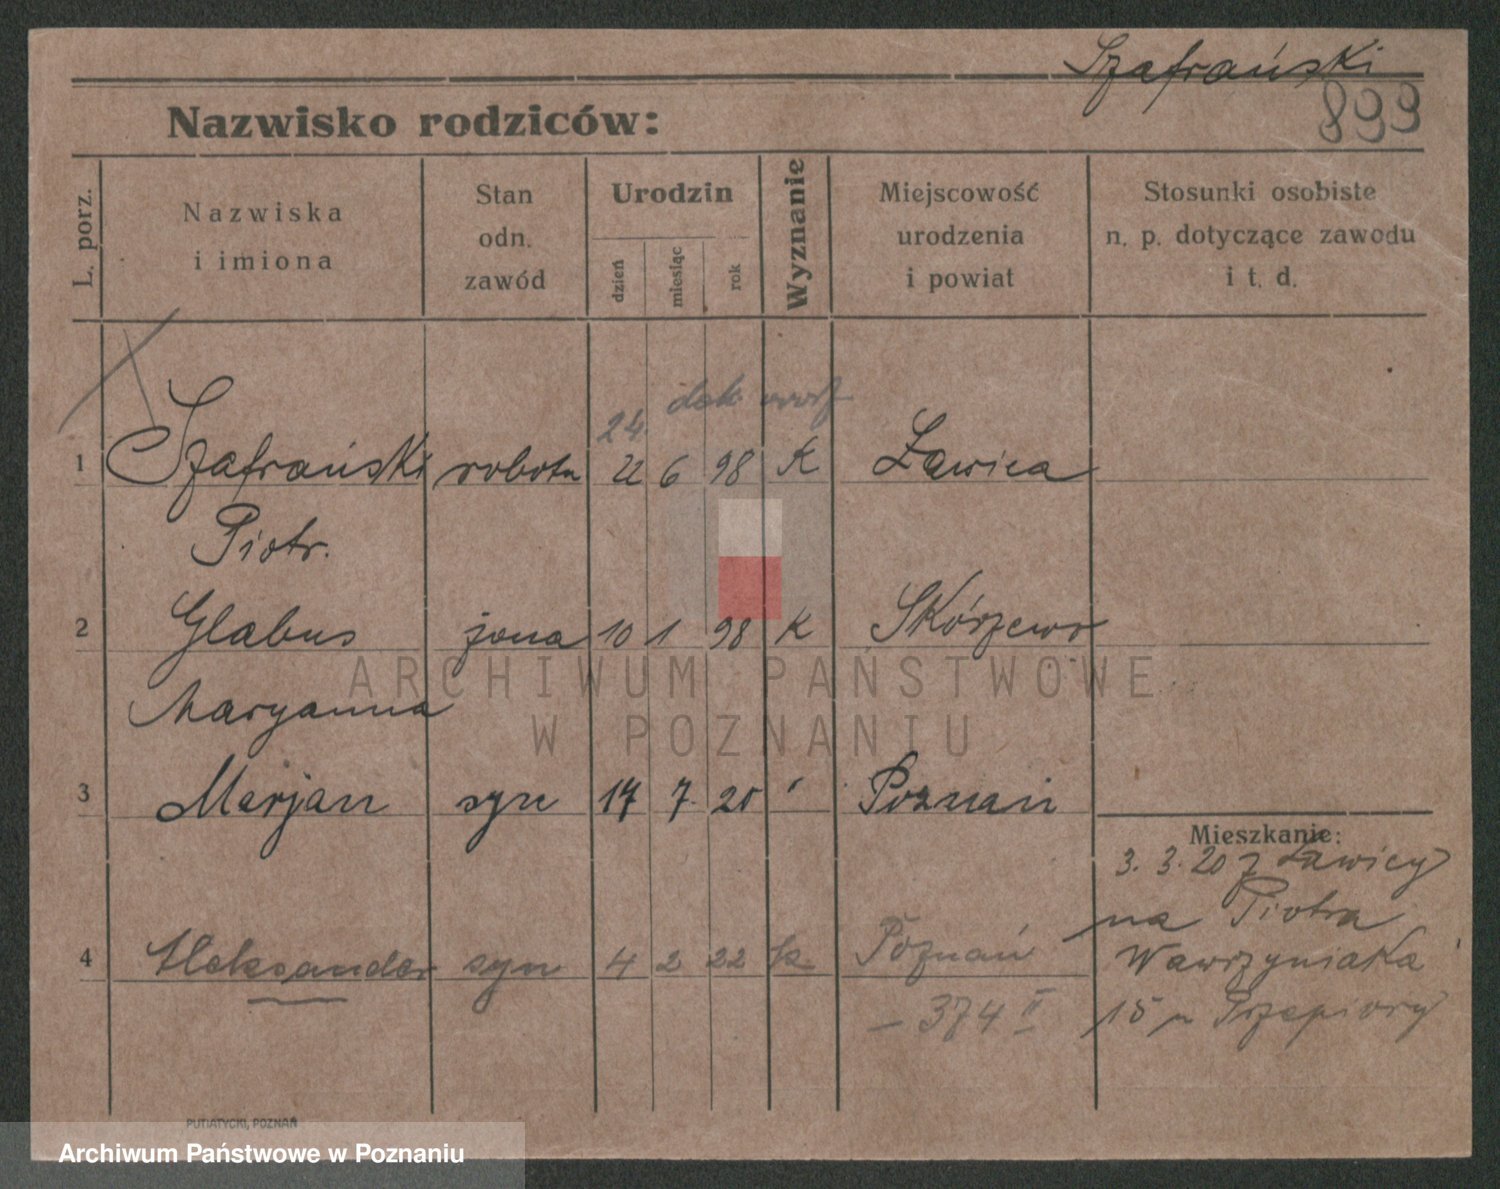 Szafrański
899
Nazwisko rodziców:
L. porz.
Nazwiska
i imiona
Stan
odn.
zawód
Urodzin
dzień
miesiąc
rok
Wyznanie
Miejscowość
urodzenia
i powiat
Stosunki osobiste
n. p. dotyczące zawodu
i t. d.
24.
1 Szafrański robotn 22 6 98 K Ławica
Piotr.
2 Glabus żona 10 1 98 K Skórzewo
Maryanna
3 Marjan syn 17 7. 20 Poznań
Mieszkanie:
3. 3. 20 z Ławicy
na Piotra
Wawrzyniaka
15 Przepiory
4 Aleksander syn 4 2 22 k Poznań
– 374 II
PUTIATYCKI, POZNAŃ
ARCHIWUM PAŃSTWOWE
W POZNANIU
Archiwum Państwowe w Poznaniu